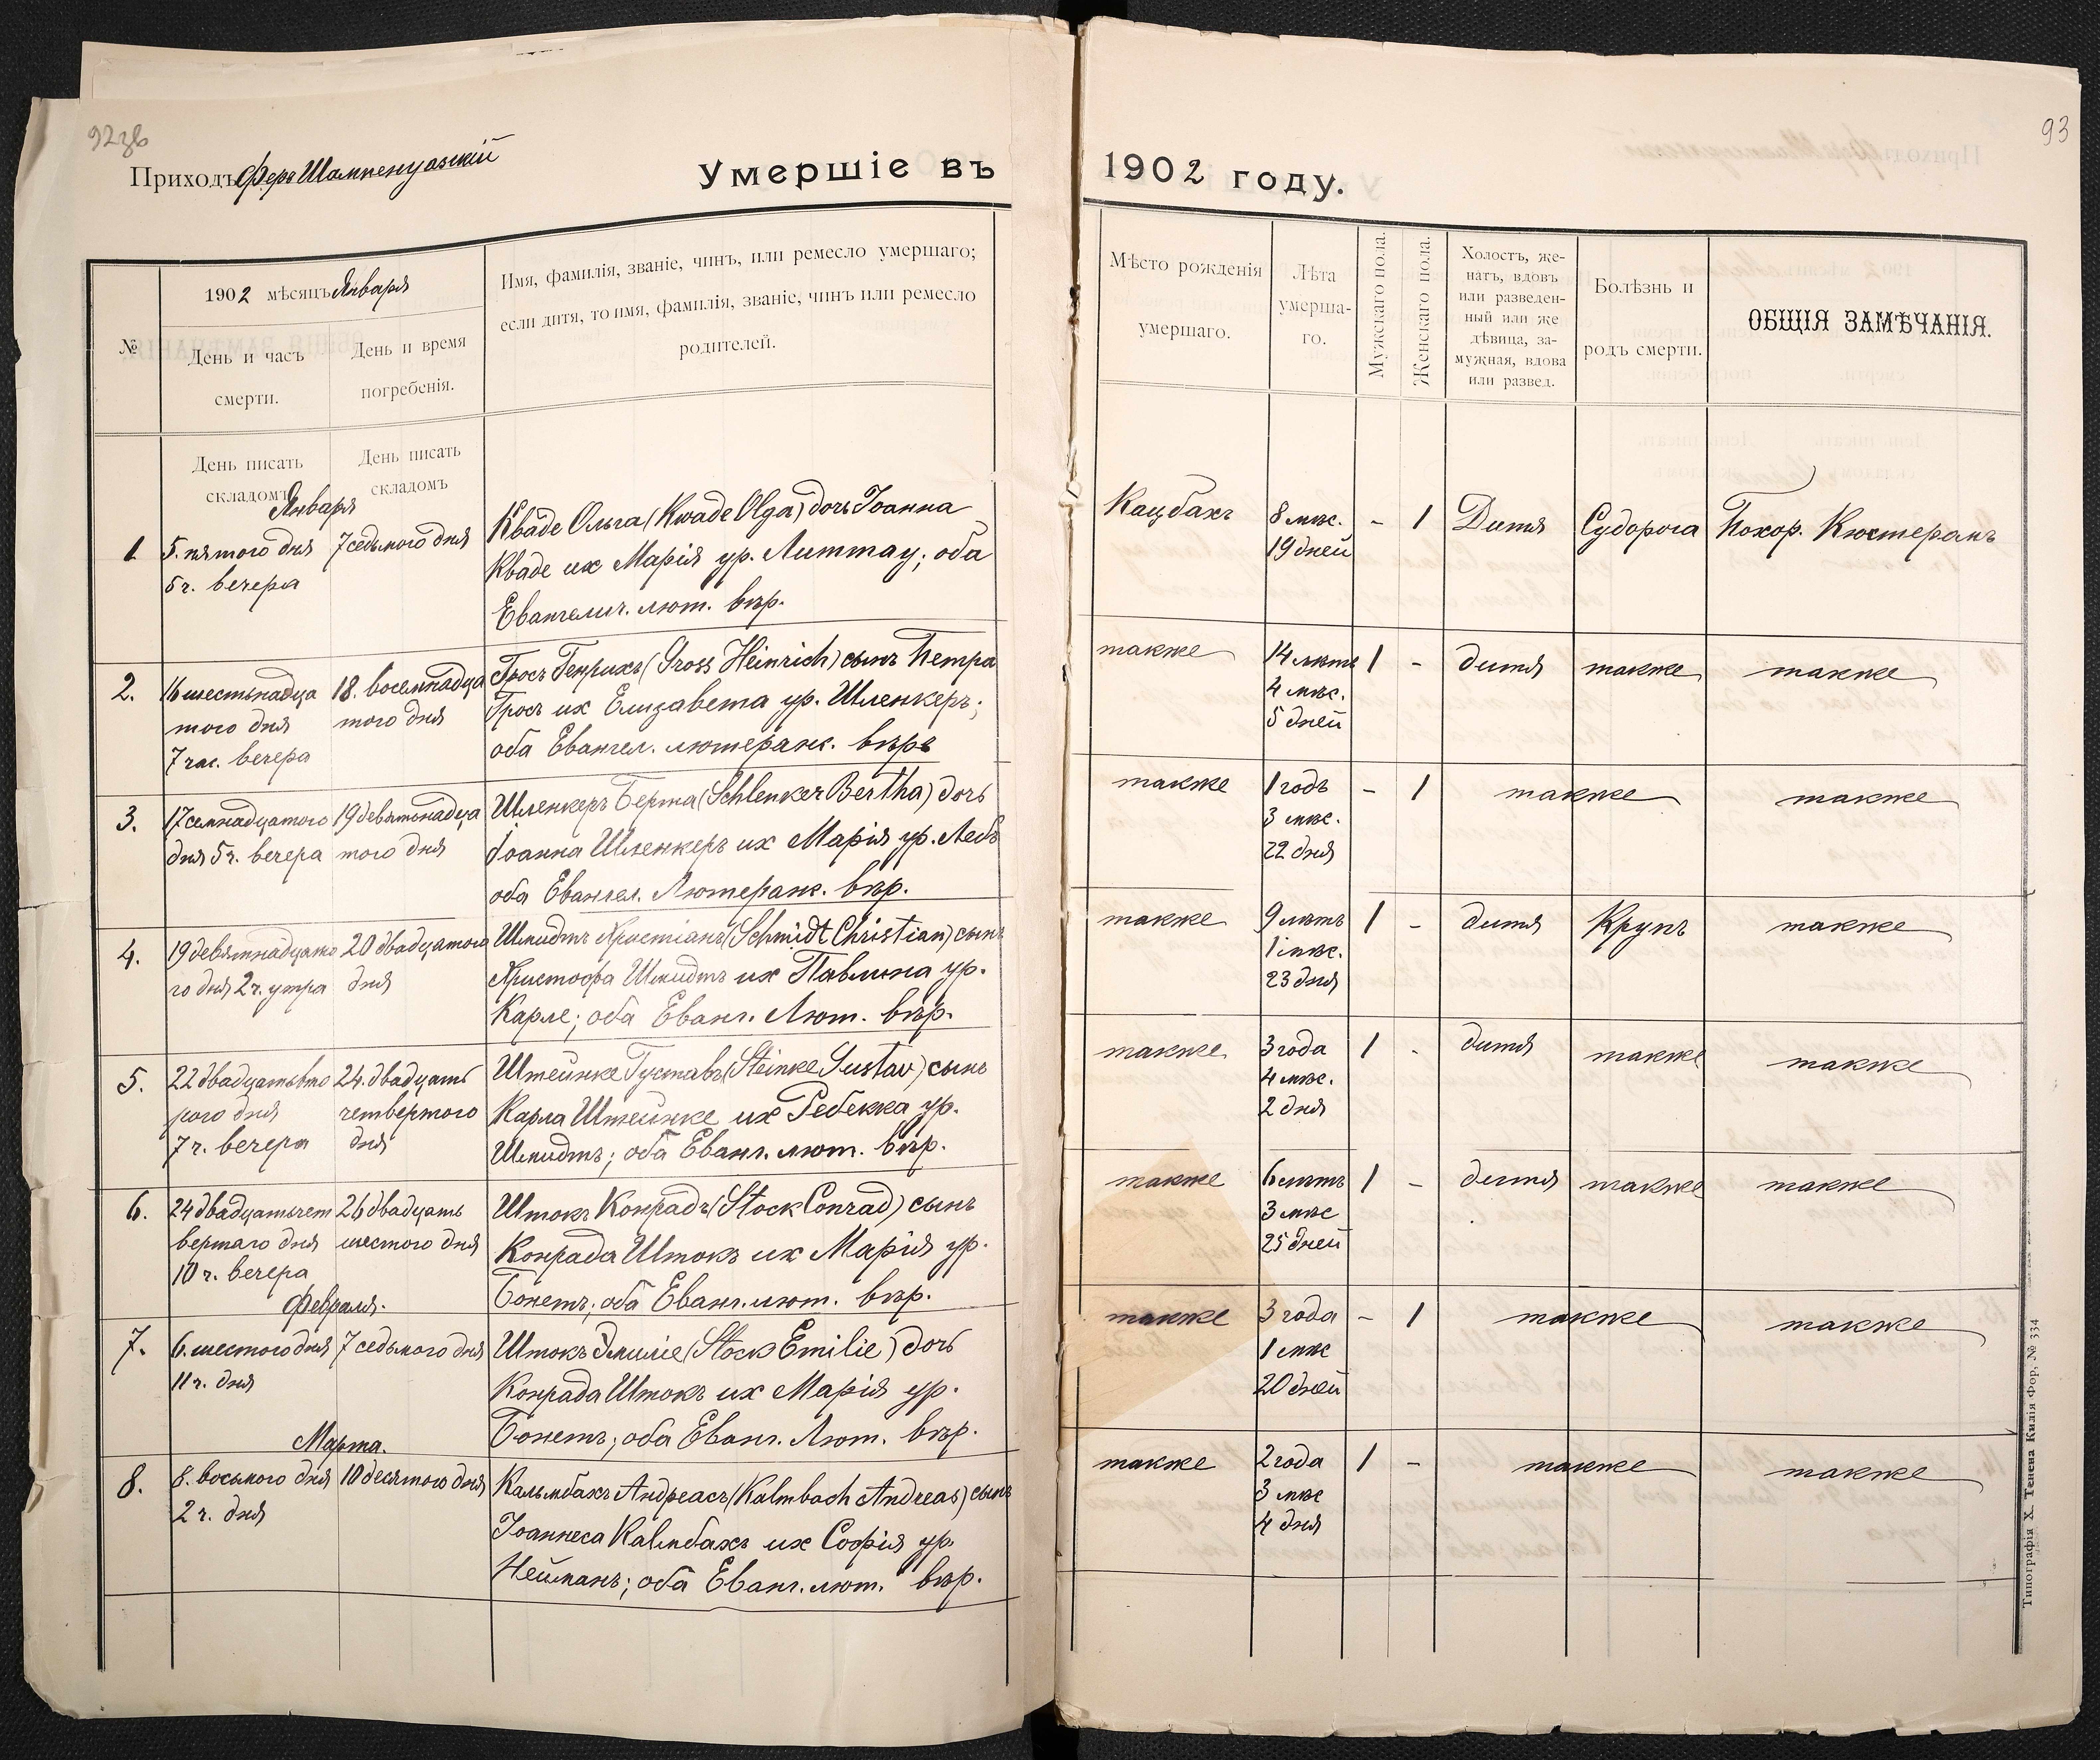 92 зв
Приходъ Феръ Шампенуазскій
Умершіе въ
1902 году.
93
№
1902 мѣсяцъ Января
День и часъ
смерти.
День и время
погребенія.
Имя, фамилія, званіе, чинъ, или ремесло умершаго;
если дитя, то имя, фамилія, званіе, чинъ или ремесло
родителей.
Мѣсто рожденія
умершаго.
Лѣта
умерша-
го.
Мужскаго пола.
Женскаго пола.
Холостъ, же-
натъ, вдовъ
или разведен-
ный или же
дѣвица, за-
мужная, вдова
или развед.
Болѣзнь и
родъ смерти.
ОБЩІЯ ЗАМѢЧАНІЯ.
День писать
складомъ
День писать
складомъ
Января
1
5. пятого дня
5 ч. вечера
7 седьмого дня
Кваде Ольга (Kwade Olga) дочь Іоанна
Кваде их Марія ур. Литтау; оба
Евангелич. лют. вѣр.
Кацбахъ
8 мѣс.
19 дней
- 1
Дитя
Судорога
Похор. Кюстеранъ
2.
16 шестьнадца
того дня
7 час. вечера
18. восемнадца
того дня
Гросъ Генрихъ (Gross Heinrich) сынъ Петра
Гросъ их Елизавета ур. Шленкеръ;
оба Евангел. лютеранс. вѣрѣ
также
14 лѣтъ
4 мѣс.
5 дней
1 -
дитя
также
также
3.
17 семнадцатого
дня 5 ч. вечера
19 девятьнадца
того дня
Шленкеръ Берта (Schlenker Bertha) дочь
Іоанна Шленкеръ их Марія ур. Лебъ
оба Евангел. Лютеранс. вѣр.
также
1 годъ
3 мѣс.
22 дня
- 1
также
также
4.
19 девятнадцато
го дня 2 ч. утра
20 двадцатого
дня
Шмидтъ Христіанъ (Schmidt Christian) сынъ
Христофа Шмидтъ их Павлина ур.
Карле; оба Еванг. Лют. вѣр.
также
9 лѣтъ
1 мѣс.
23 дня
1 -
дитя
Крупъ
также
5.
22 двадцатьвто
рого дня
7 ч. вечера
24. двадцать
четвертого
дня
Штейнке Густавъ (Steinke Gustav) сынъ
Карла Штейнке их Ребекка ур.
Шмидтъ; оба Еванг. лют. вѣр.
также
3 года
4 мѣс.
2 дня
1 -
дитя
также
также
6.
24 двадцатьчет
вертаго дня
10 ч. вечера
26 двадцать
шестого дня
Штокъ Конрадъ (Stock Conrad) сынъ
Конрада Штокъ их Марія ур.
Бонетъ; оба Еванг. лют. вѣр.
также
6 лѣтъ
3 мѣс
25 дней
1 -
дитя
также
также
Февраля.
7.
6. шестого дня
11 ч. дня
7 седьмого дня
Штокъ Эмиліе (Stock Emilie) дочь
Конрада Штокъ их Марія ур.
Бонетъ; оба Еванг. Лют. вѣр.
также
3 года
1 мѣс
20 дней
- 1
также
также
Марта.
8.
8. восьмого дня
2 ч. дня
10 десятого дня
Кальмбахъ Андреасъ (Kalmbach Andreas) сынъ
Іоаннеса Kalмбахъ их Софія ур.
Нейманъ; оба Еванг. лют. вѣр.
также
2 года
3 мѣс
4 дня
1 -
также
также
Типографія Х. Тенева Килія Фор. № 334